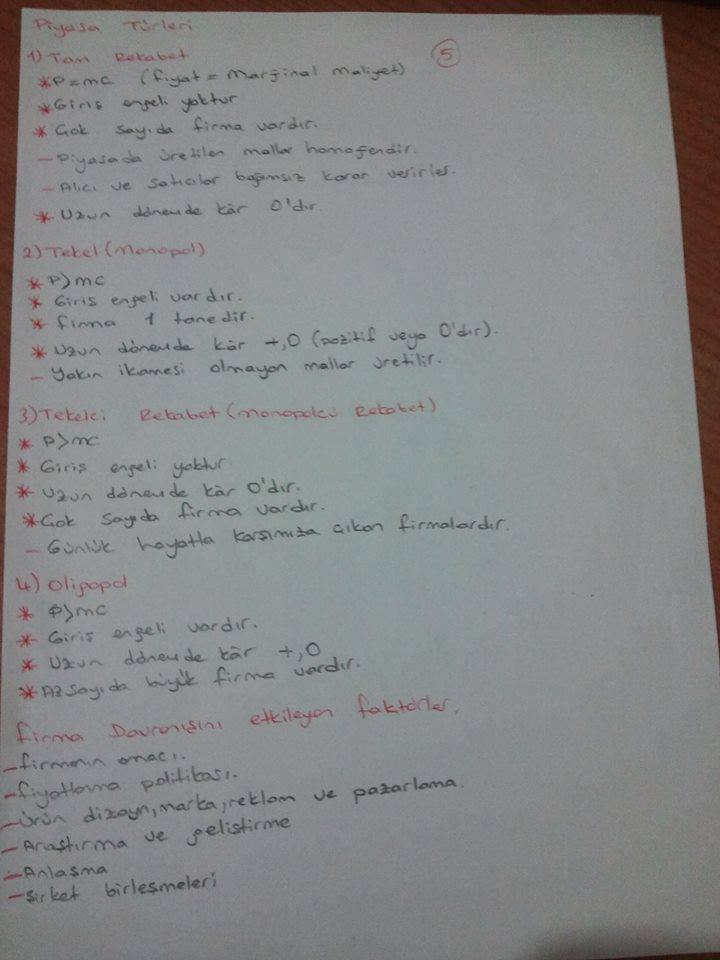 Piyasa Türleri
5
1) Tam Rekabet
* P=mc (fiyat = Marjinal maliyet)
* Giriş engeli yoktur
* Çok sayıda firma vardır.
- Piyasada üretilen mallar homojendir.
- Alıcı ve satıcılar bağımsız karar verirler.
* Uzun dönemde kâr 0'dır
2) Tekel (Monopol)
* P>mc
* Giriş engeli vardır.
* firma 1 tanedir.
* Uzun dönemde kâr +,0 (pozitif veya 0'dır).
- Yakın ikamesi olmayan mallar üretilir.
3) Tekelci Rekabet (Monopolcü Rekabet)
* P>mc
* Giriş engeli yoktur
* Uzun dönemde kâr 0'dır.
* Çok sayıda firma vardır.
- Günlük hayatla karşımıza çıkan firmalardır.
4) Oligopol
* P>mc
* Giriş engeli vardır.
* Uzun dönemde kâr +,0
* Az sayıda büyük firma vardır.
Firma Davranışını etkileyen faktörler.
- firmanın amacı.
- fiyatlama politikası.
- Ürün dizayn, marka, reklam ve pazarlama.
- Araştırma ve geliştirme
- Anlaşma
- Şirket birleşmeleri